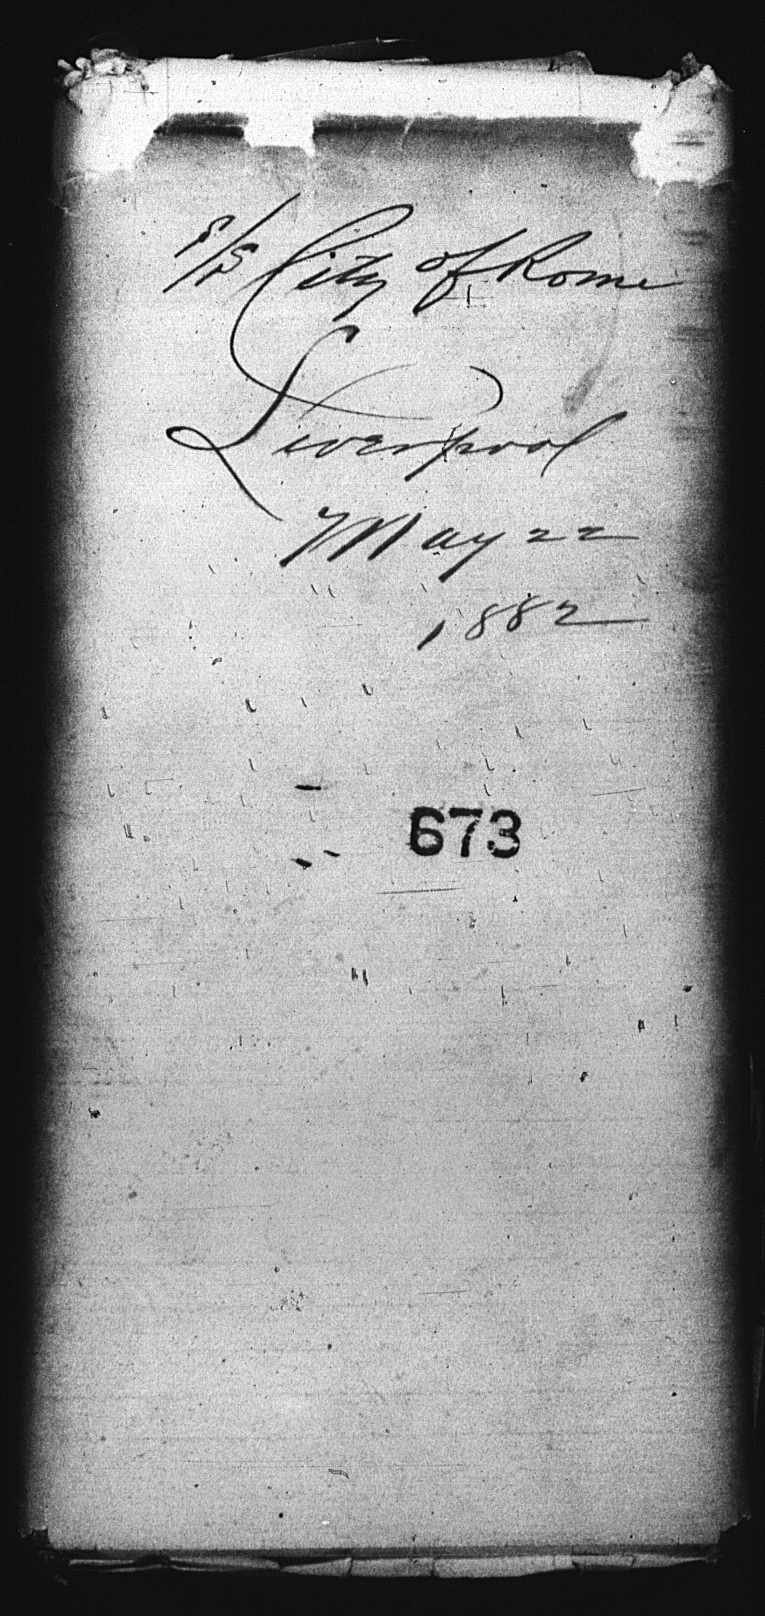 S/S City of Rome
Liverpool
May 22
1882
673